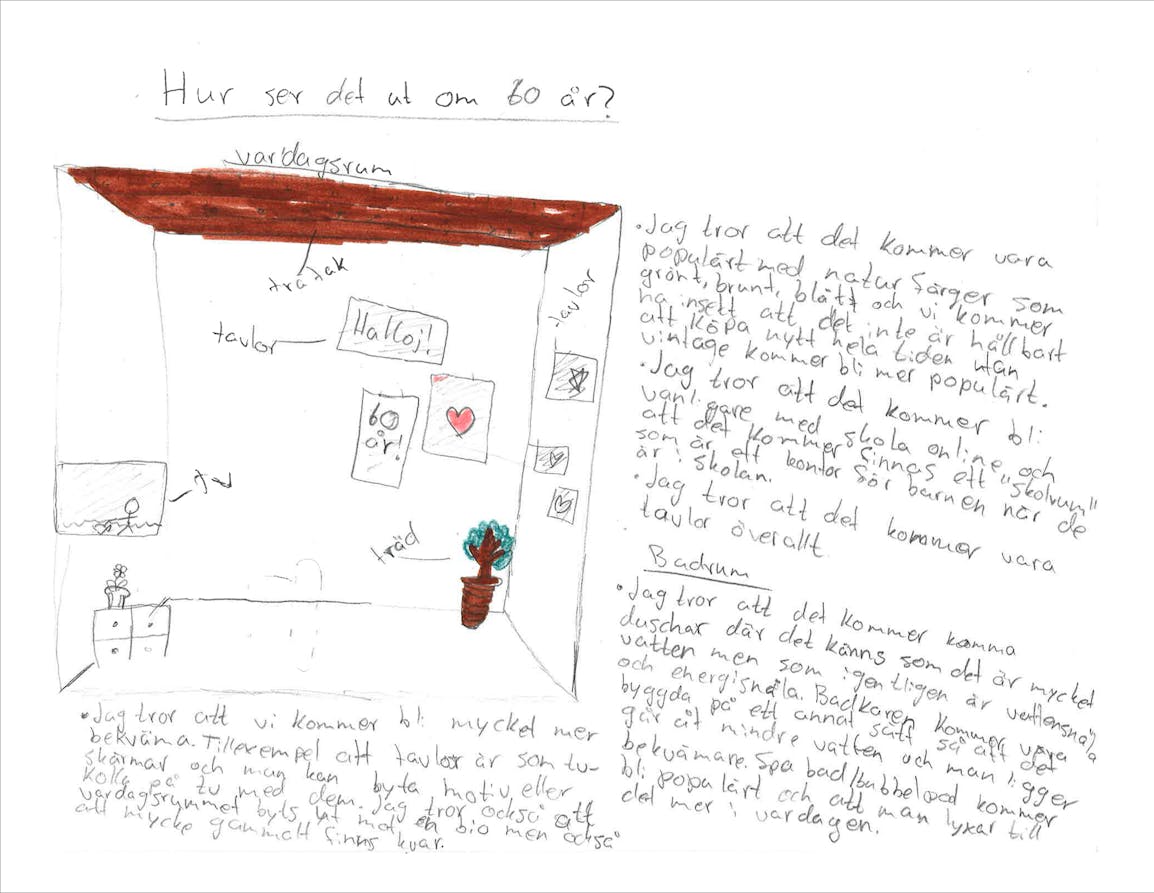 Hur ser det ut om 60 år?
vardagsrum
trätak
tavlor
Halloj!
tavlor
60
år!
tv
träd
• Jag tror att det kommer vara
populärt med natur färger som
grönt, brunt, blått och vi kommer
ha insett att det inte är hållbart
att köpa nytt hela tiden utan
vintage kommer bli mer populärt.
• Jag tror att det kommer bli
vanligare med skola online, och
att det kommer finnas ett "skolrum"
som är ett kontor för barnen när de
är i skolan.
• Jag tror att det kommer vara
tavlor överallt.
Badrum
• Jag tror att det kommer komma
duschar där det känns som det är mycket
vatten men som igentligen är vattensnåla
och energisnåla. Badkaren kommer vara
byggda på ett annat sätt så att det
går åt mindre vatten och man ligger
bekvämare. Spa bad/bubbelpool kommer
bli populärt och att man lyxar till
det mer i vardagen.
• Jag tror att vi kommer bli mycket mer
bekväma. Tillexempel att tavlor är som tv-
skärmar och man kan byta motiv eller
kolla på tv med dem. Jag tror också att
vardagsrummet byts ut mot en bio men också
att mycke gammalt finns kvar.